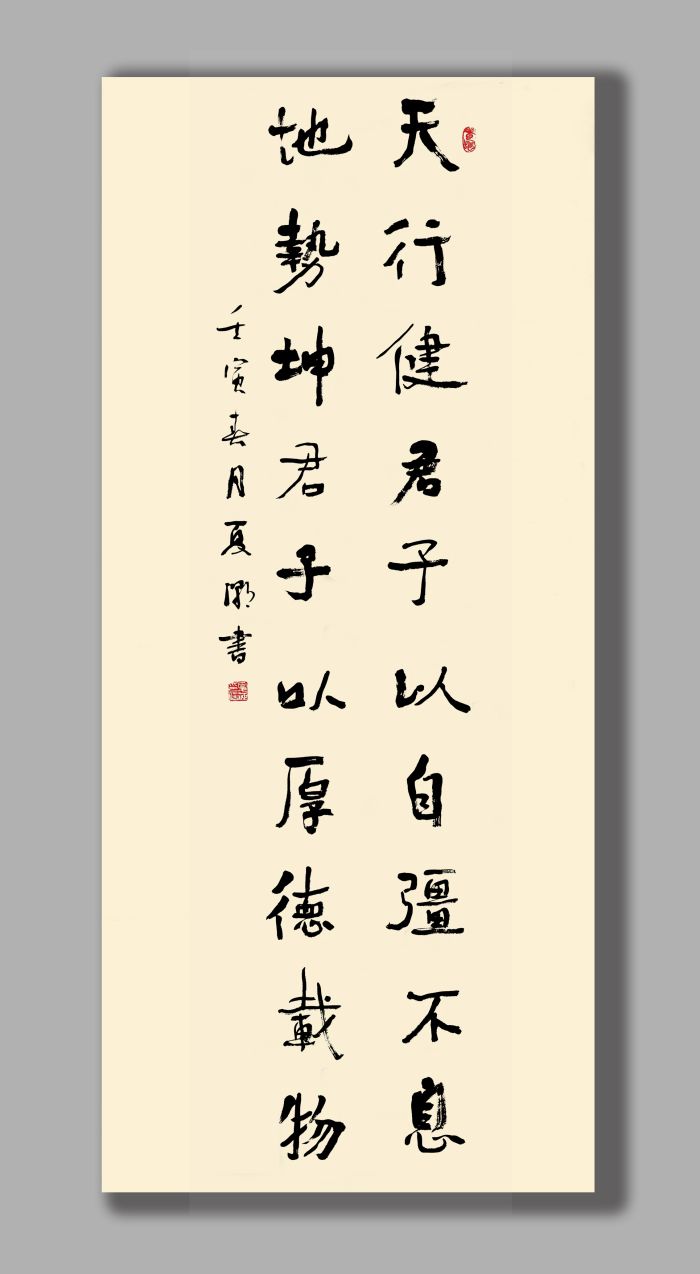 天行健君子以自彊不息
地勢坤君子以厚德載物
壬寅春月夏灝書